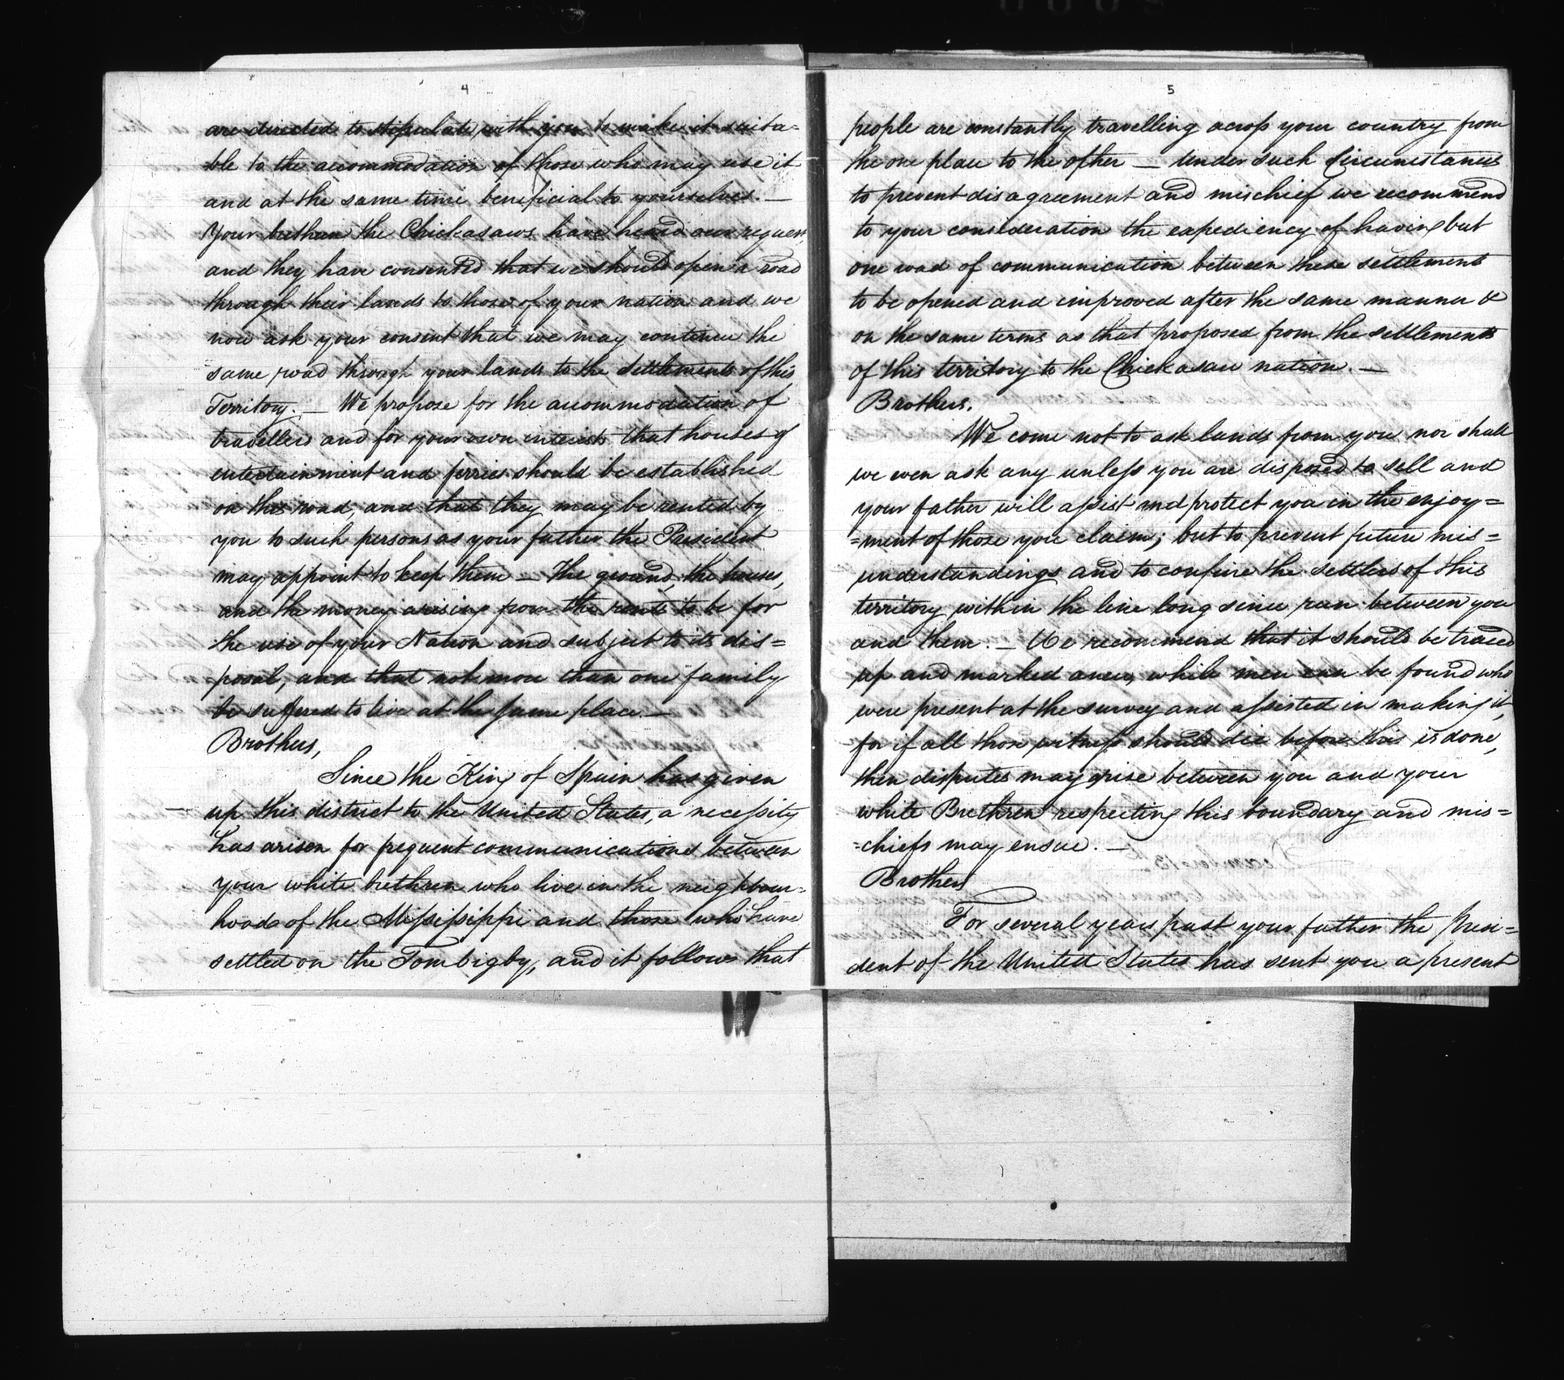 4
are directed to stipulate with you to make it suita=
ble to the accommodation of those who may use it
and at the same time beneficial to yourselves. —
Your brethren the Chickasaws have heard our request,
and they have consented that we should open a road
through their lands to those of your nation and we
now ask your consent that we may continue the
same road through your lands to the settlements of this
Territory. — We propose for the accommodation of
travellers and for your own interests that houses of
entertainment and ferries should be established
on this road, and that they may be rented by
you to such persons as your father the President
may appoint to keep them — The ground, the houses,
and the money arising from the rents to be for
the use of your Nation and subject to its dis=
posal, and that not more than one family
be suffered to live at the same place. —
Brothers,
Since the King of Spain has given
up this district to the United States, a necessity
has arisen for frequent communications between
your white brethren who live in the neighbour=
hoods of the Mississippi and those who have
settled on the Tombigby, and it follows that
5
people are constantly travelling across your country from
the one place to the other — Under such Circumstances
to prevent disagreement and mischief we recommend
to your consideration the expediency of having but
one road of communication between these settlements
to be opened and improved after the same manner &
on the same terms as that proposed from the settlements
of this territory to the Chickasaw nation. —
Brothers.
We come not to ask lands from you nor shall
we ever ask any unless you are disposed to sell and
your father will assist and protect you in the enjoy=
=ment of those you claim; but to prevent future mis=
understandings and to confine the settlers of this
territory within the line long since run between you
and them. — We recommend that it should be traced
up and marked anew, while men can be found who
were present at the survey and assisted in making it,
for if all those witness should die before this is done,
then disputes may arise between you and your
white Brethren respecting this boundary and mis=
=chiefs may ensue. —
Brothers
For several years past your father the Presi=
dent of the United States has sent you a present